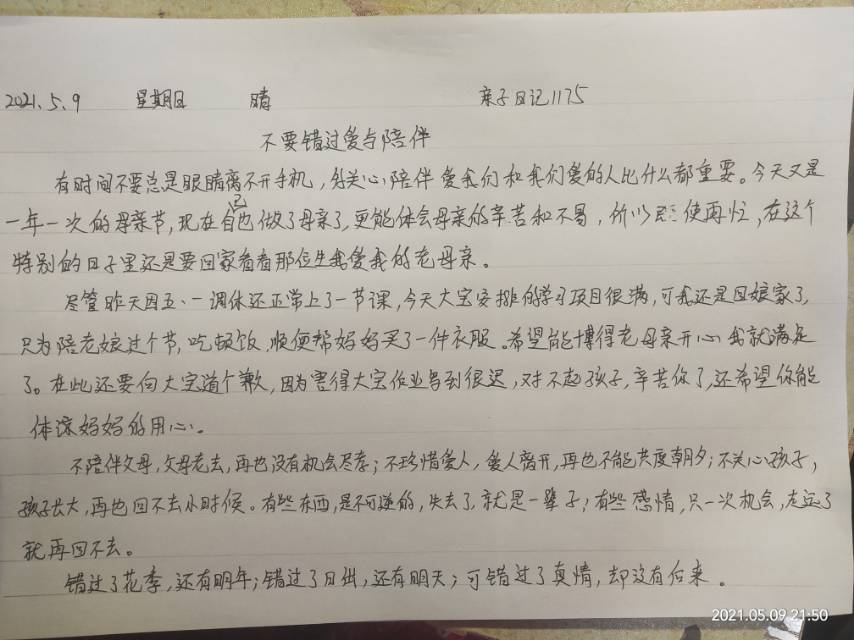 2021.5.9 星期日 晴 亲子日记1175
不要错过爱与陪伴
有时间不要总是眼睛离不开手机,多关心陪伴爱我们和我们爱的人比什么都重要。今天又是
一年一次的母亲节,现在自己也做了母亲了,更能体会母亲的辛苦和不易,所以即使再忙,在这个
特别的日子里还是要回家看看那位生我爱我的老母亲。
尽管昨天因五、一调休还正常上了一节课,今天大宝安排的学习项目很满,可我还是回娘家了,
只为陪老娘过个节,吃顿饭,顺便帮妈妈买了一件衣服。希望能博得老母亲开心我就满足
了。在此还要向大宝道个歉,因为害得大宝作业写到很迟,对不起孩子,辛苦你了,还希望你能
体谅妈妈的用心。
不陪伴父母,父母老去,再也没有机会尽孝;不珍惜爱人,爱人离开,再也不能共度朝夕;不关心孩子,
孩子长大,再也回不去小时候。有些东西,是不可逆的,失去了,就是一辈子;有些感情,只一次机会,走远了
就再回不去。
错过了花季,还有明年;错过了日出,还有明天;可错过了真情,却没有后来。
2021.05.09 21:50